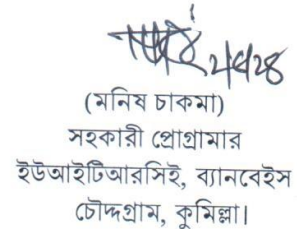 (মনিষ চাকমা)
সহকারী প্রোগ্রামার
ইউআইটিআরসিই, ব্যানবেইস
চৌদ্দগ্রাম, কুমিল্লা।